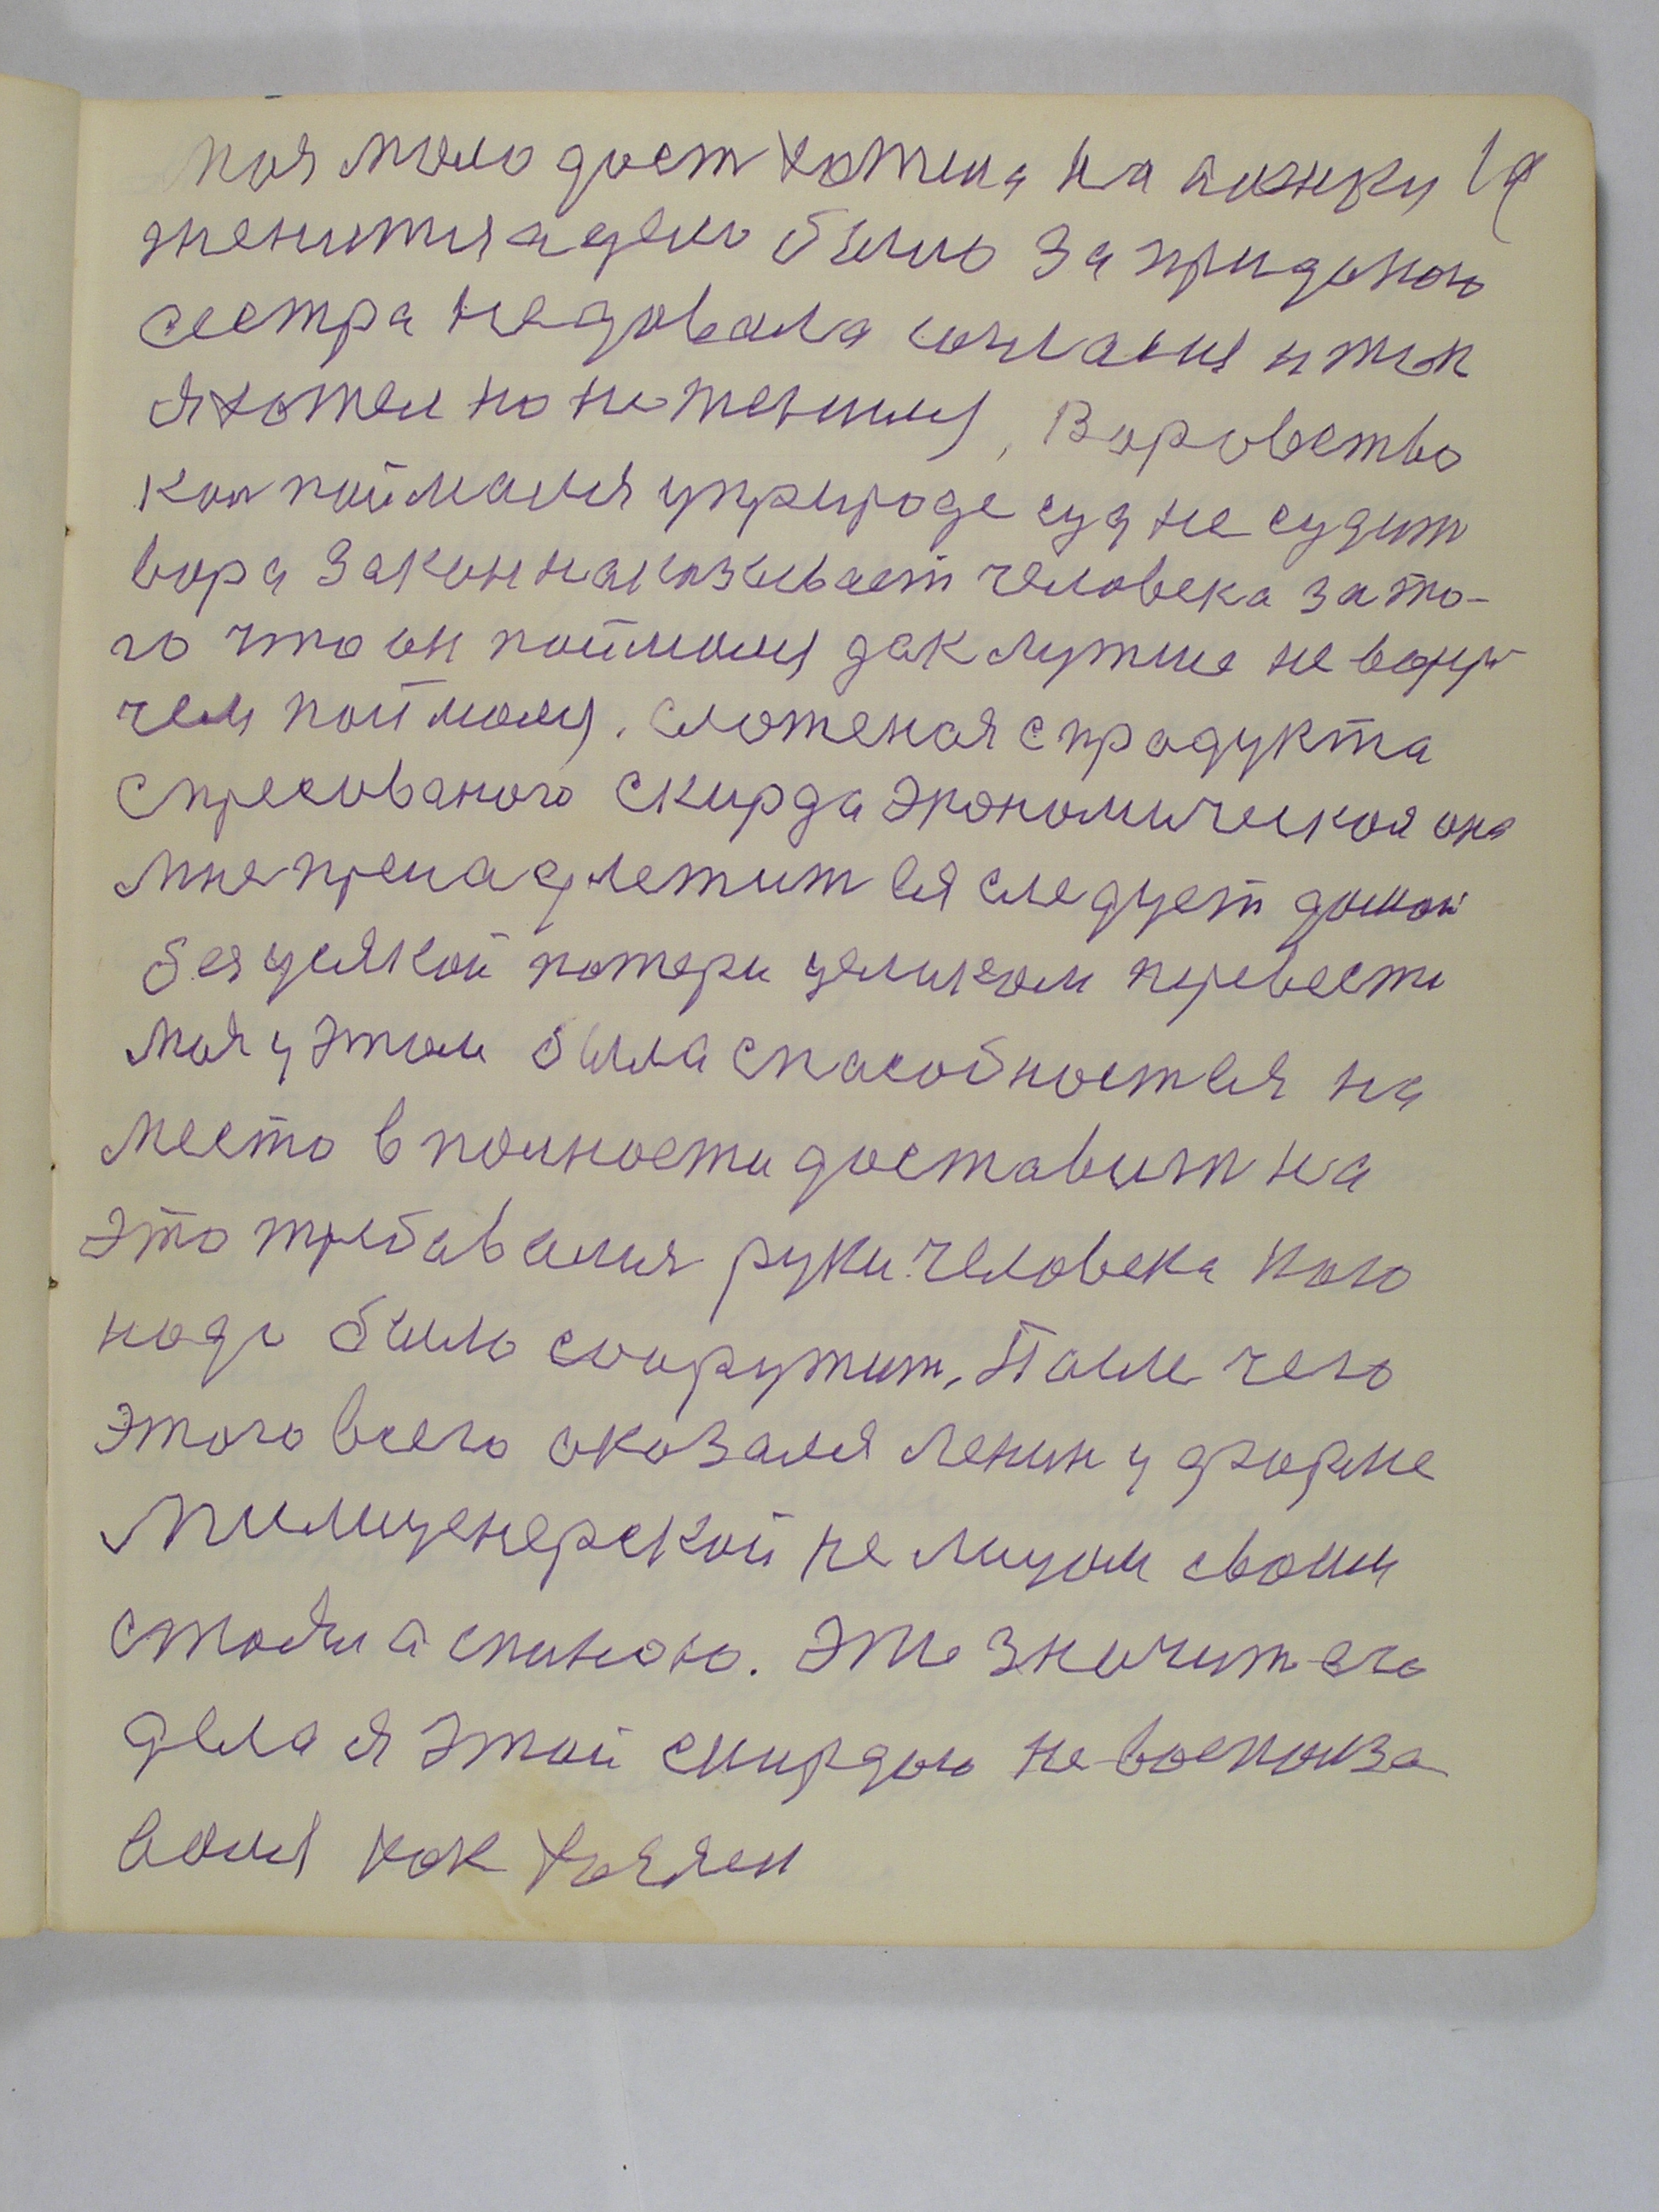 моя молодост хотела на

женится а дело было за приданою
сестра недовала согласия и так
я хотел но не женился, Воровство
кол поймался у природе суд не судит
вора закон наказывает человека за то-
го что он поймался дак лутше не воруй
чем поймался. Сложеная с продукта
спресованого скирда экономическоя она
мне принадлежит ея следует домой
без усякой потери целиком перевести
моя у этом была способност ея на
место в полности доставит на
это требавалися руки человека кого
надо было сооружит. После чего
этого всего оказался Ленин у форме
милиценерской не лицом своим
стоял а спиною. Это значит его
дела я этой скирдою не воспользо
вался как хозяин